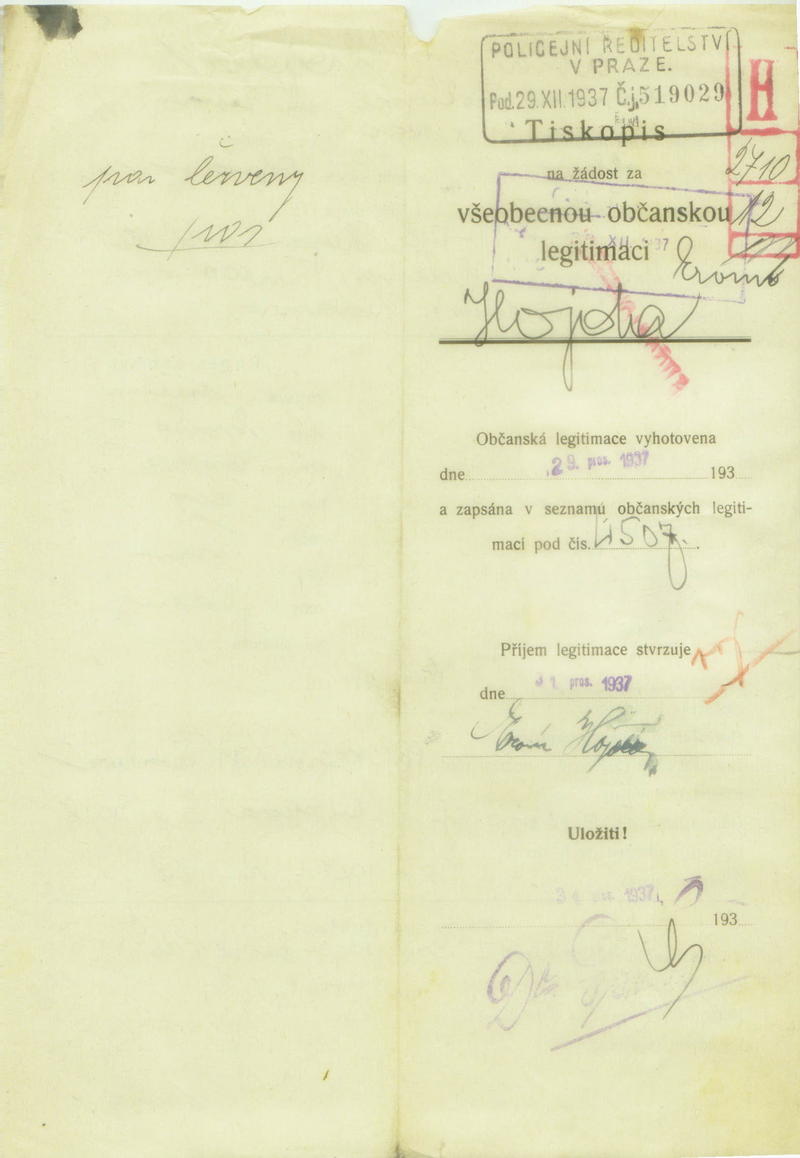 červený
POLICEJNÍ ŘEDITELSTVÍ
V PRAZE.
Pod. 29.XII.1937 Č.j. 519029
H
Tiskopis
2710
na žádost za
všeobecnou občanskou
12
legitimaci
XII 37
Hojda
Občanská legitimace vyhotovena
dne 29. pros. 1937 193
a zapsána v seznamu občanských legiti-
mací pod čís. 4507.
Příjem legitimace stvrzuje
dne 31 pros. 1937
Uložiti!
1937
193
Dr.